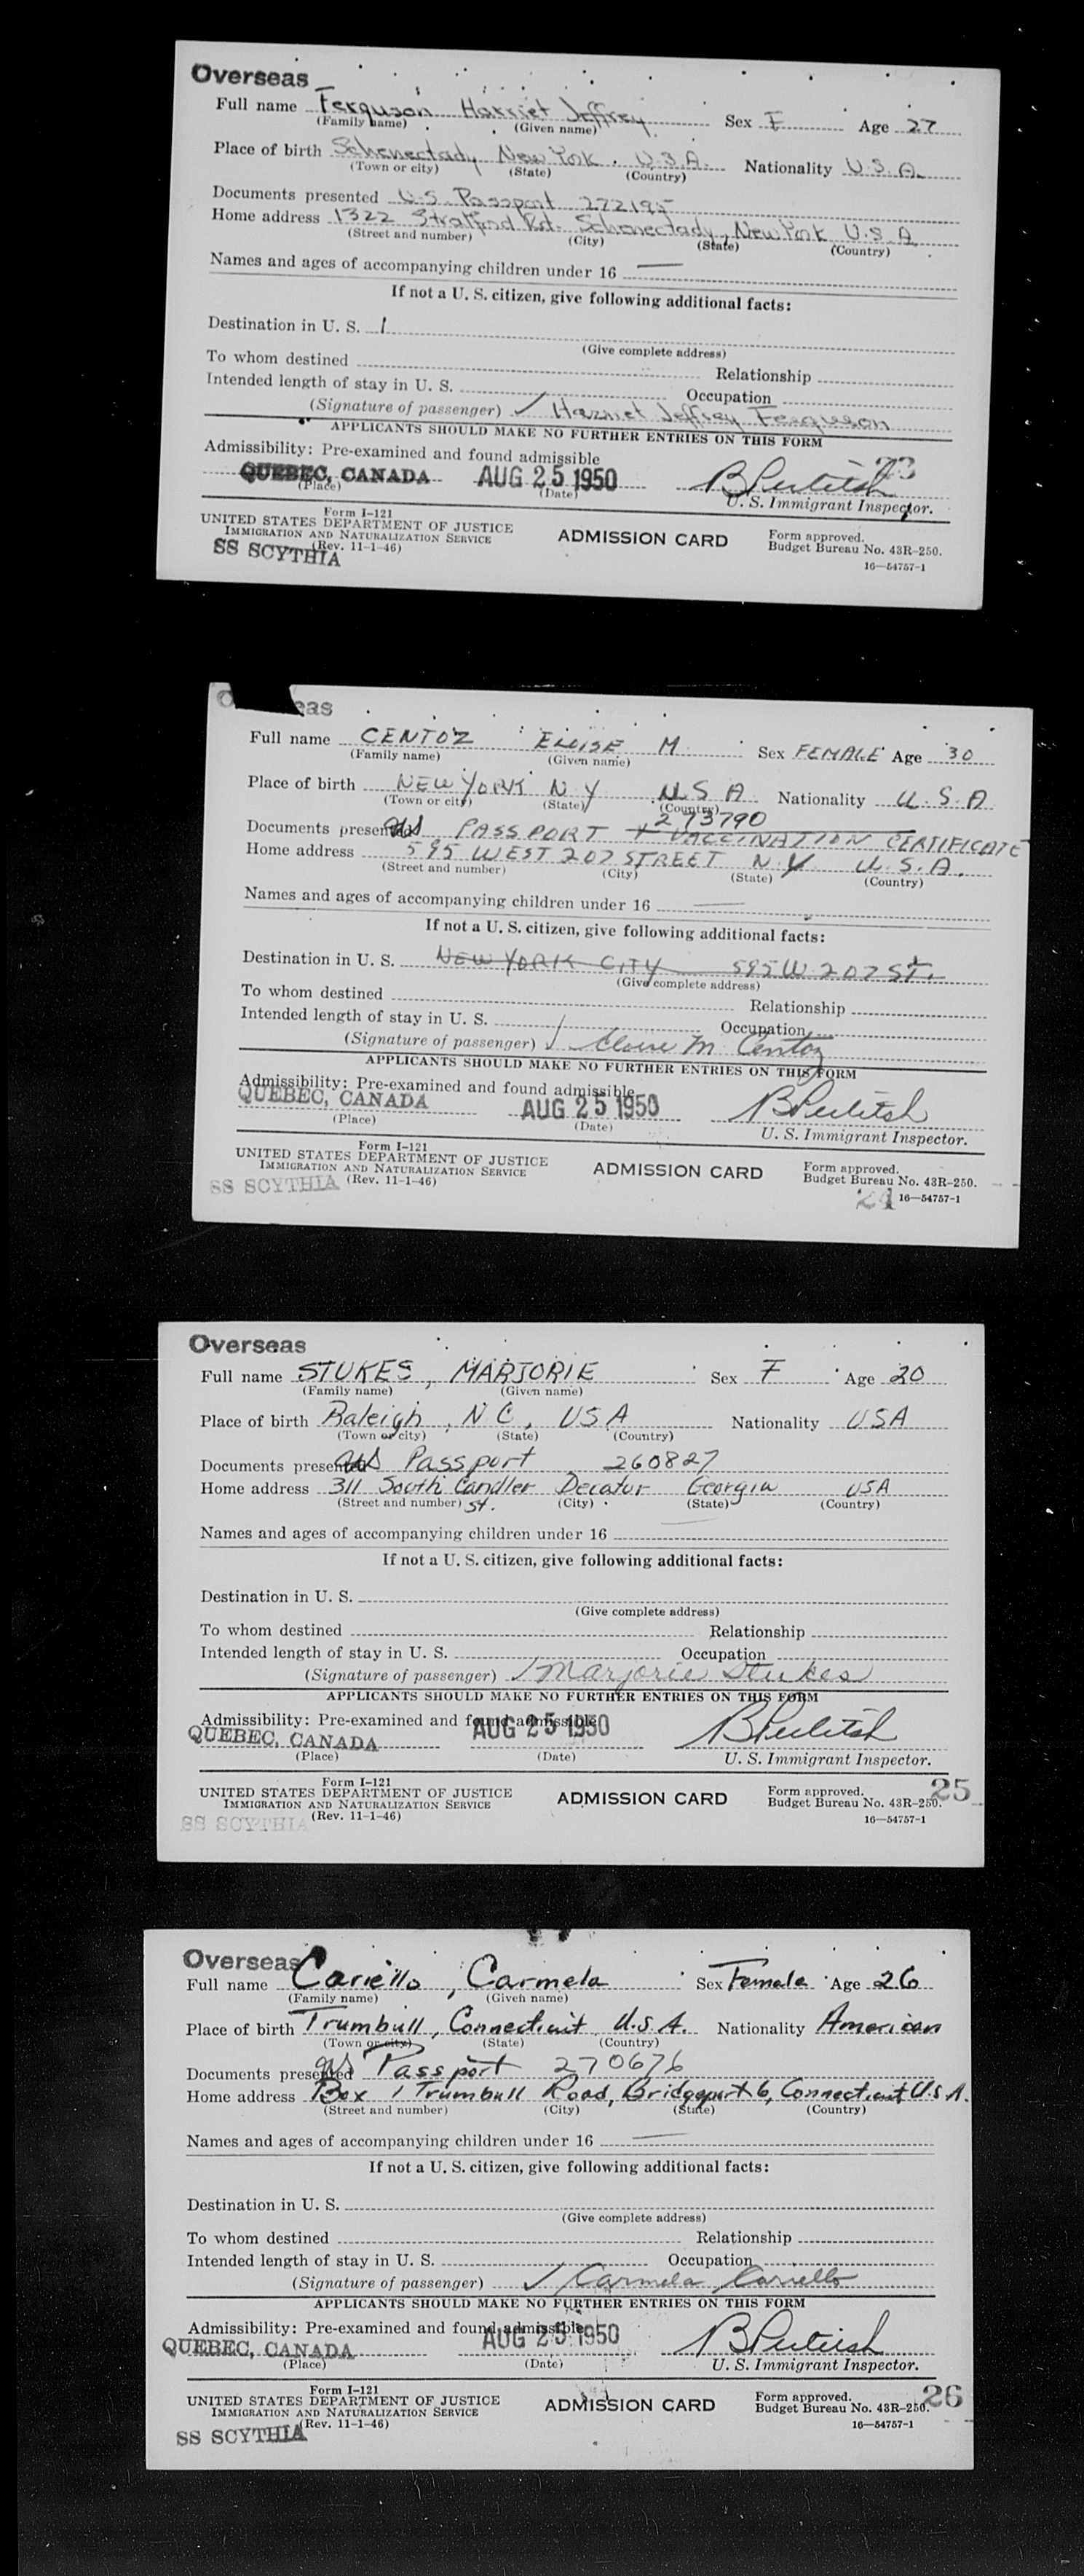 Overseas
Full name Ferguson Harriet Jeffrey Sex F Age 27
(Family name) (Given name)
Place of birth Schenectady New York. U.S.A. Nationality U.S.A.
(Town or city) (State) (Country)
Documents presented U.S. Passport 272195
Home address 1322 Stratford Rd. Schenectady, New York U.S.A
(Street and number) (City) (State) (Country)
Names and ages of accompanying children under 16 —
If not a U. S. citizen, give following additional facts:
Destination in U. S.
(Give complete address)
To whom destined Relationship
Intended length of stay in U. S. Occupation
(Signature of passenger) ✓ Harriet Jeffrey Ferguson
APPLICANTS SHOULD MAKE NO FURTHER ENTRIES ON THIS FORM
Admissibility: Pre-examined and found admissible 23
QUEBEC, CANADA AUG 25 1950
(Place) (Date) U. S. Immigrant Inspector.
Form I-121
UNITED STATES DEPARTMENT OF JUSTICE
IMMIGRATION AND NATURALIZATION SERVICE ADMISSION CARD Form approved.
(Rev. 11-1-46) Budget Bureau No. 43R-250.
SS SCYTHIA 16—54757-1
Full name CENTOZ ELOISE M Sex FEMALE Age 30
(Family name) (Given name)
Place of birth NEW YORK N Y U S A Nationality U.S.A
(Town or city) (State) (Country)
273790
Documents presented US PASSPORT + VACCINATION CERTIFICATE
Home address 595 WEST 207 STREET N.Y U.S.A.
(Street and number) (City) (State) (Country)
Names and ages of accompanying children under 16 —
If not a U. S. citizen, give following additional facts:
Destination in U. S. NEW YORK CITY 595 W 207 ST.
(Give complete address)
To whom destined Relationship
Intended length of stay in U. S. Occupation
(Signature of passenger) ✓ Eloise M Centoz
APPLICANTS SHOULD MAKE NO FURTHER ENTRIES ON THIS FORM
Admissibility: Pre-examined and found admissible
QUEBEC, CANADA AUG 25 1950
(Place) (Date) U. S. Immigrant Inspector.
Form I-121
UNITED STATES DEPARTMENT OF JUSTICE
IMMIGRATION AND NATURALIZATION SERVICE ADMISSION CARD Form approved.
(Rev. 11-1-46) Budget Bureau No. 43R-250.
SS SCYTHIA 24 16—54757-1
Overseas
Full name STUKES, MARJORIE Sex F Age 20
(Family name) (Given name)
Place of birth Raleigh, N C, USA Nationality USA
(Town or city) (State) (Country)
Documents presented US Passport 260827
Home address 311 South Candler Decatur Georgia USA
(Street and number) St. (City) (State) (Country)
Names and ages of accompanying children under 16 —
If not a U. S. citizen, give following additional facts:
Destination in U. S.
(Give complete address)
To whom destined Relationship
Intended length of stay in U. S. Occupation
(Signature of passenger) ✓ Marjorie Stukes
APPLICANTS SHOULD MAKE NO FURTHER ENTRIES ON THIS FORM
Admissibility: Pre-examined and found admissible
QUEBEC, CANADA AUG 25 1950
(Place) (Date) U. S. Immigrant Inspector.
Form I-121
UNITED STATES DEPARTMENT OF JUSTICE 25
IMMIGRATION AND NATURALIZATION SERVICE ADMISSION CARD Form approved.
(Rev. 11-1-46) Budget Bureau No. 43R-250.
SS SCYTHIA 16—54757-1
Overseas
Full name Cariello, Carmela Sex Female Age 26
(Family name) (Given name)
Place of birth Trumbull, Connecticut, U.S.A. Nationality American
(Town or city) (State) (Country)
Documents presented US Passport 270676
Home address Box 1 Trumbull Road, Bridgeport 6, Connecticut, U.S.A.
(Street and number) (City) (State) (Country)
Names and ages of accompanying children under 16 —
If not a U. S. citizen, give following additional facts:
Destination in U. S.
(Give complete address)
To whom destined Relationship
Intended length of stay in U. S. Occupation
(Signature of passenger) ✓ Carmela Cariello
APPLICANTS SHOULD MAKE NO FURTHER ENTRIES ON THIS FORM
Admissibility: Pre-examined and found admissible
QUEBEC, CANADA AUG 25 1950
(Place) (Date) U. S. Immigrant Inspector.
Form I-121
UNITED STATES DEPARTMENT OF JUSTICE 26
IMMIGRATION AND NATURALIZATION SERVICE ADMISSION CARD Form approved.
(Rev. 11-1-46) Budget Bureau No. 43R-250.
SS SCYTHIA 16—54757-1